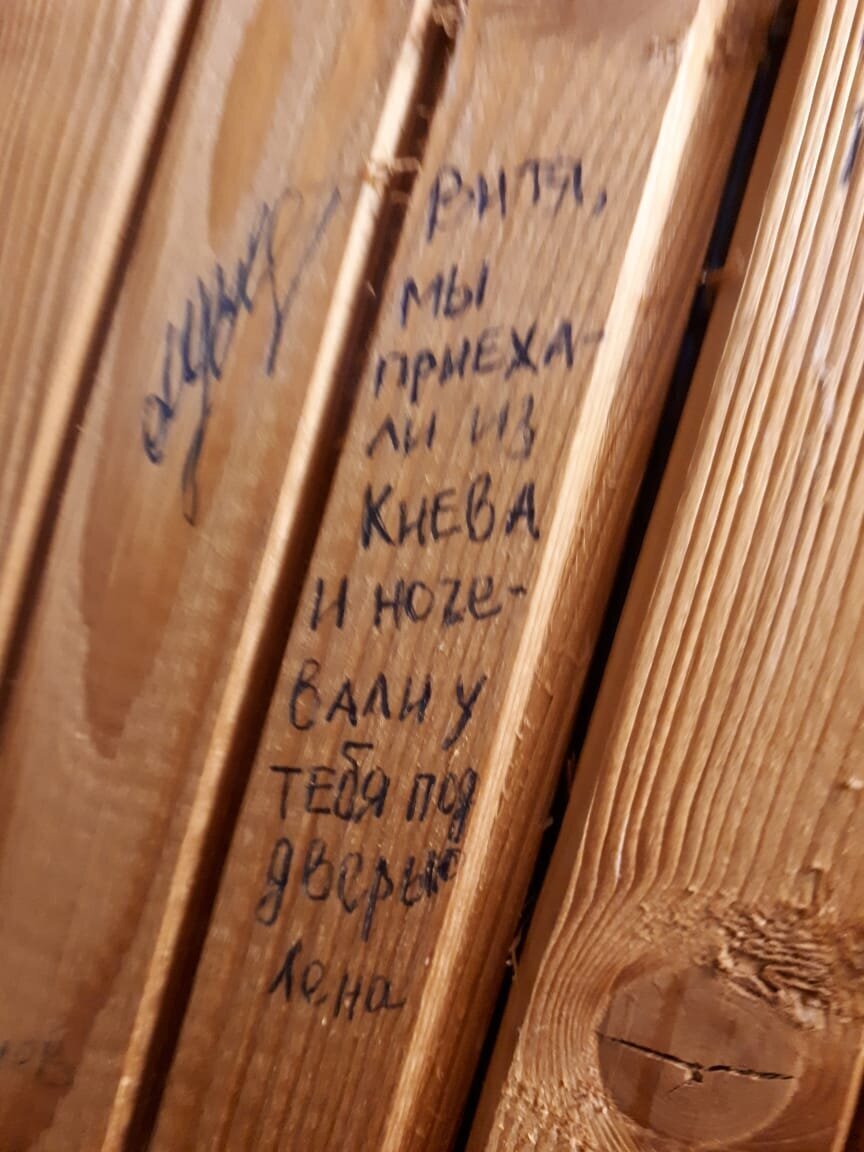 ВИТЯ,
МЫ
ПРИЕХА-
ЛИ ИЗ
КИЕВА
И НОЧЕ-
ВАЛИ У
ТЕБЯ ПОД
дверью
Лена